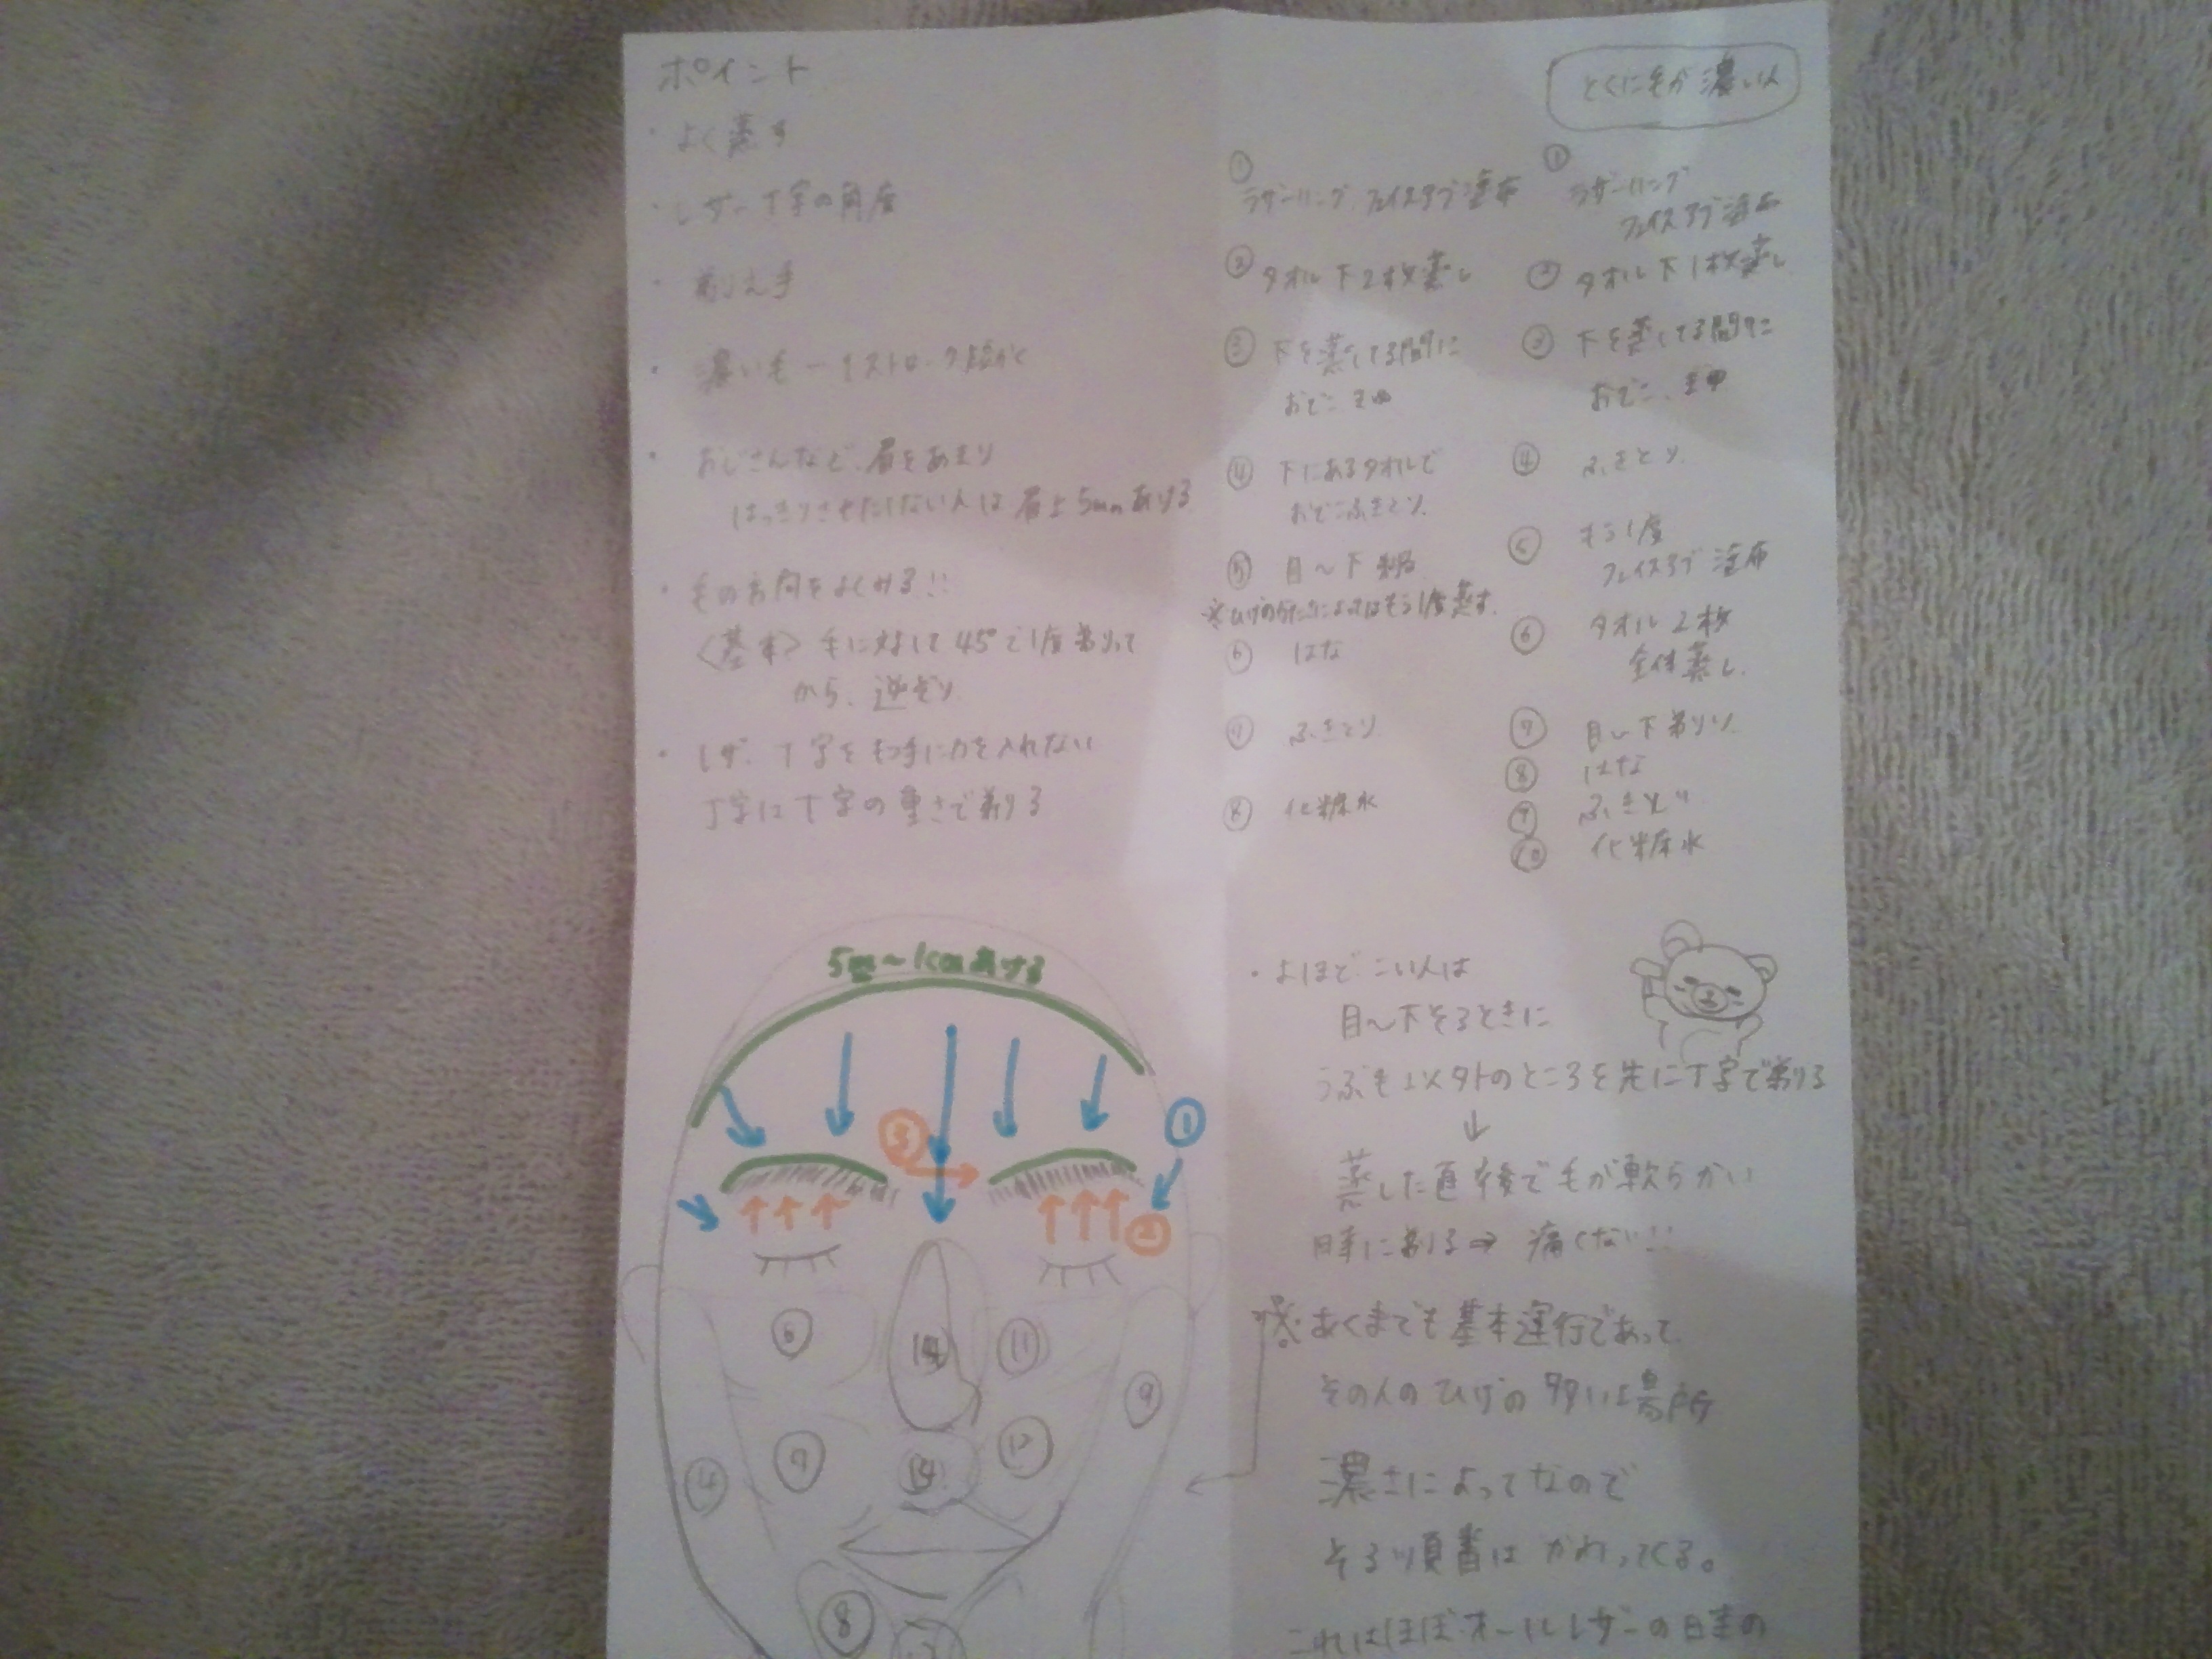 ポイント
・よく蒸す
・レザー丁字の角度
・剃え手
・濃い毛ー1ストローク短かく
・おじさんなど、眉をあまり
はっきりさせたくない人は 眉上5mmあける
・毛の方向をよくみる!!
〈基本〉毛に対して45°で1度剃って
から、逆ぞり
・レザー、丁字をもつ手に力を入れない
丁字は丁字の重さで剃る
① ラザーリング、フェイスラブ塗布
② タオル下2枚蒸し
③ 下を蒸してる間に
おでこ、まゆ
④ 下にあるタオルで
おでこふきとり
⑤ 目〜下剃る
※ひげの
によってはもう1度蒸す。
⑥ はな
⑦ ふきとり
⑧ 化粧水
とくに毛が濃い人
① ラザーリング
フェイスラブ塗布
② タオル下1枚蒸し
③ 下を蒸してる間に
おでこ、まゆ
④ ふきとり
⑤ もう1度
フェイスラブ塗布
⑥ タオル2枚
全体蒸し
⑦ 目〜下剃り
⑧ はな
⑨ ふきとり
⑩ 化粧水
5mm〜1cmあける
①
③
②
⑥
⑭
⑪
⑨
⑦
⑭
⑫
⑩
⑧
・よほどこい人は
目〜下そるときに
うぶ毛以外のところを先に丁字で剃る
↓
蒸した直後で毛が軟らかい
時に剃る⇒痛くない!!
※あくまでも基本運行であって
その人のひげの多い場所
濃さによってなので
そる順番はかわってくる。
これはほぼオールレザーの時の